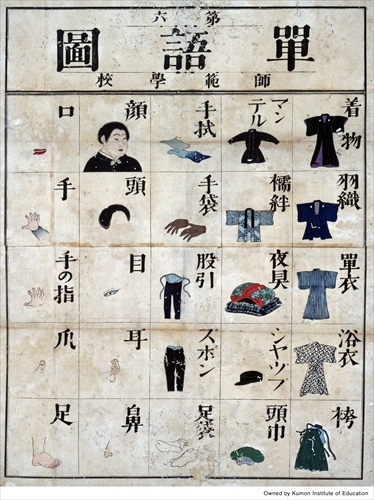 第六
單語圖
師範學校
着物
羽織
單衣
浴衣
袴
マンテル
襦絆
夜具
シヤツプ
頭巾
手拭
手袋
股引
ズボン
足袋
顔
頭
目
耳
鼻
口
手
手の指
爪
足
Owned by Kumon Institute of Education